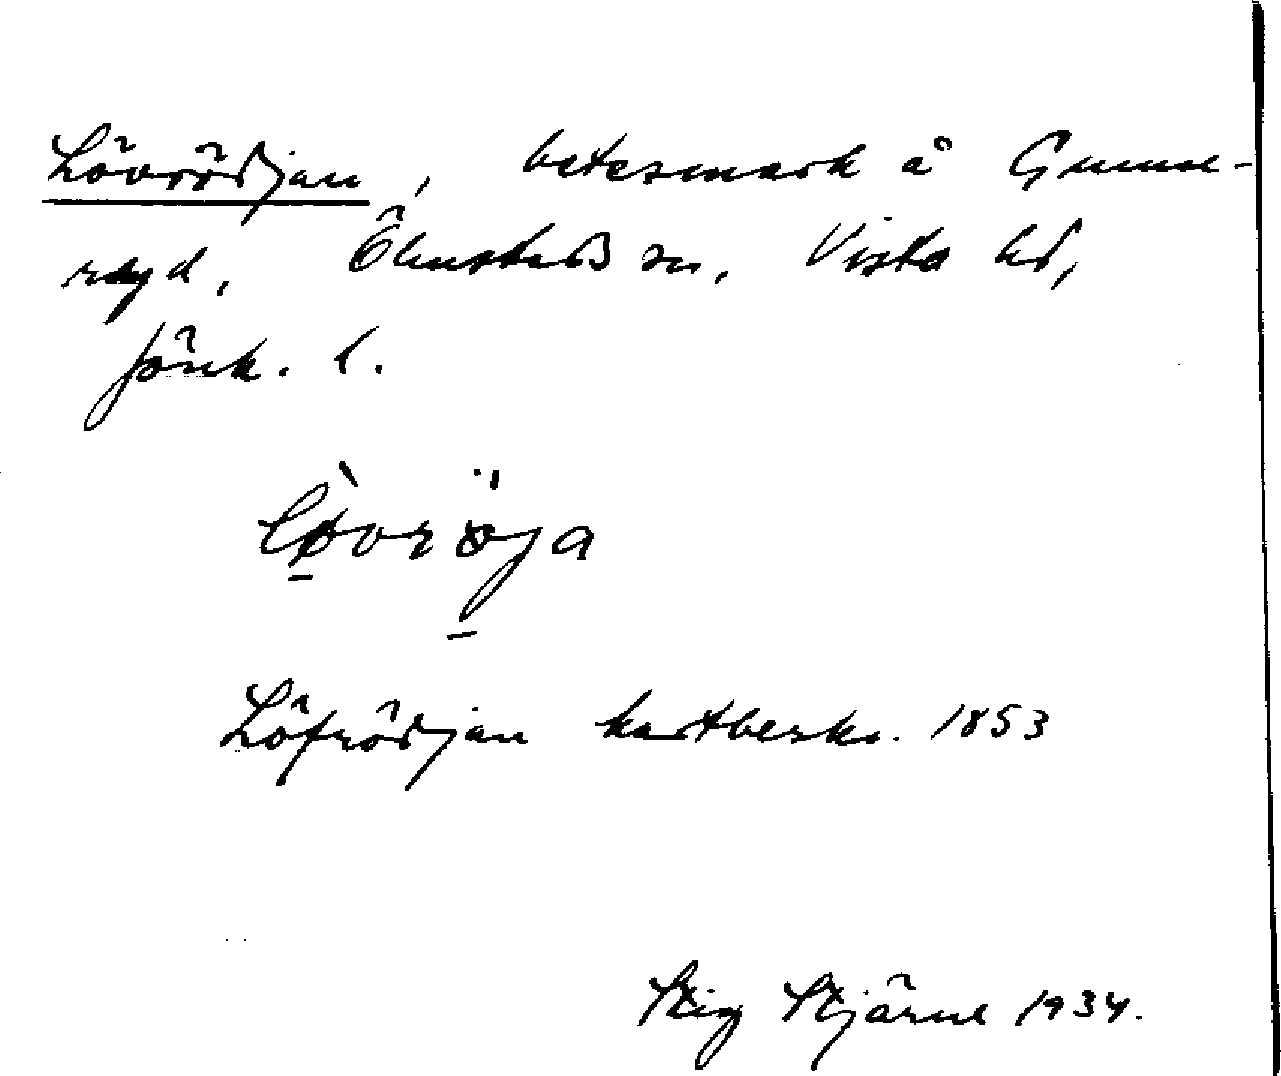 Lövrödjan, betesmark å Gunne-
ryd, Ölmstads sn, Vista hd,
Jönk. l.
løvröja
Löfrödjan kartbeskr. 1853
Stig Stjärne 1934.